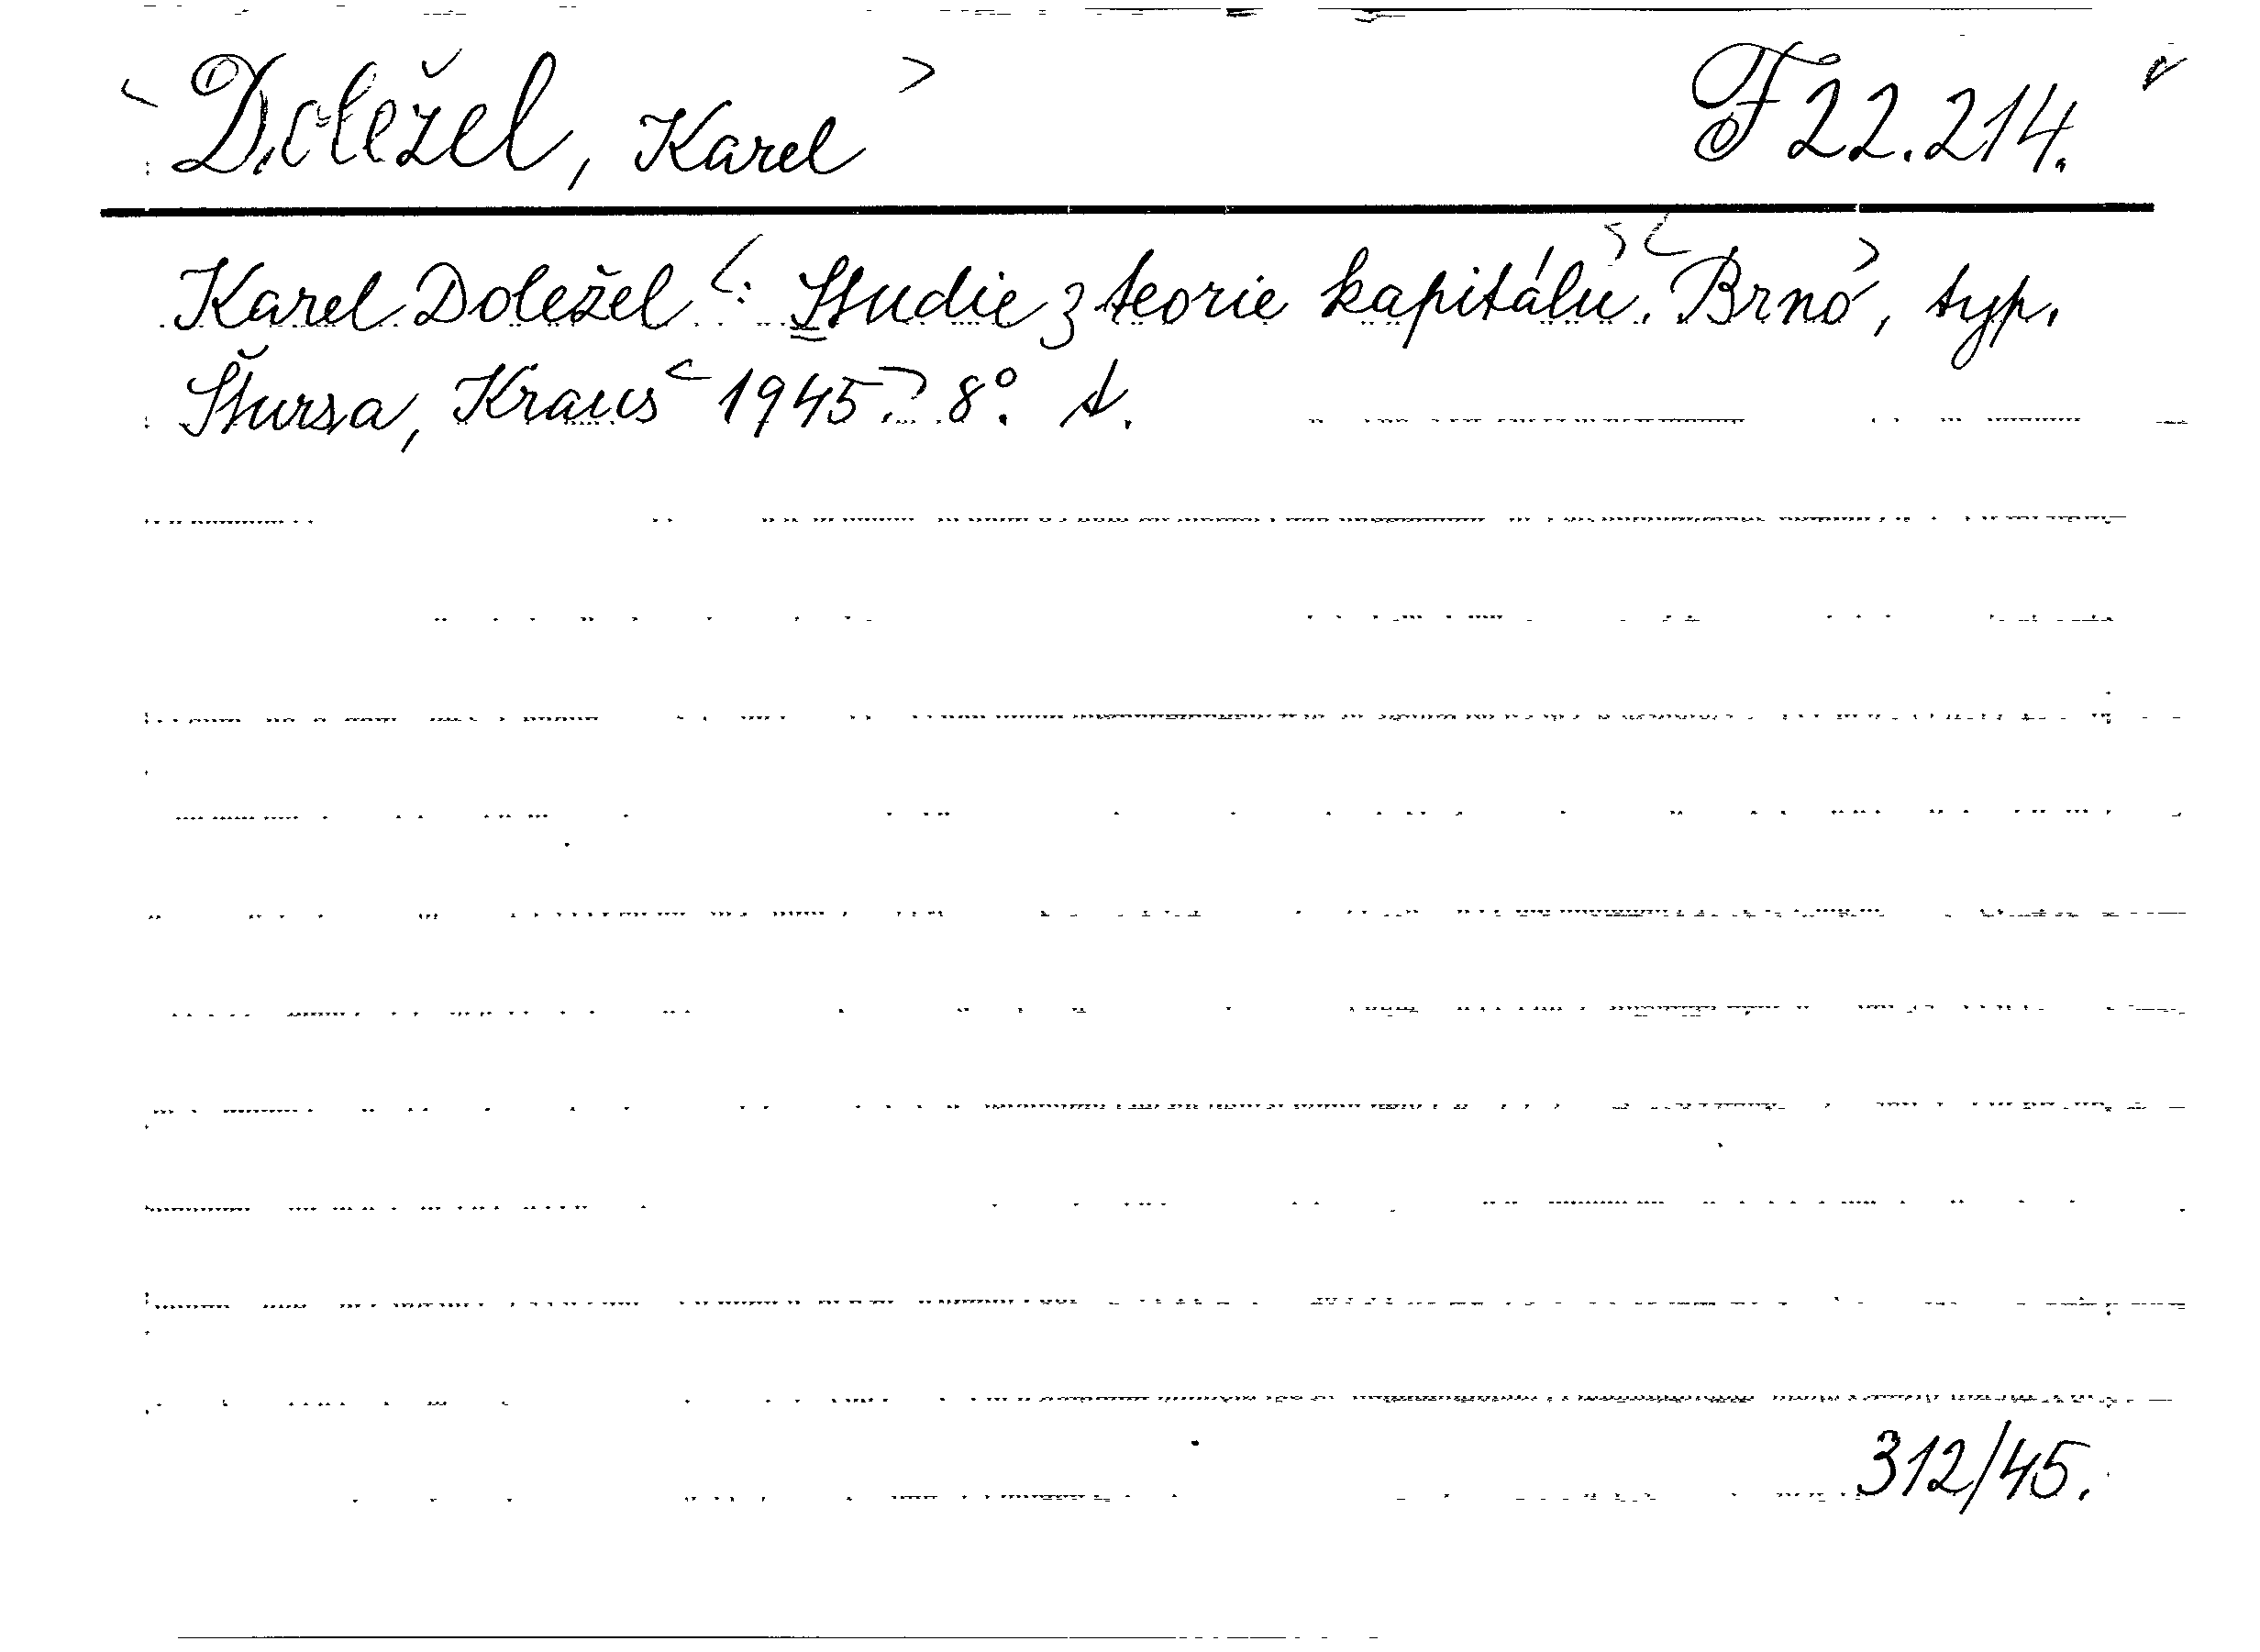 <Doležel, Karel> F 22.214.
Karel Doležel <: Studie z teorie kapitálu.> <Brno>, typ.
Štursa, Kraus <1945.> 8°. A.
312/45.